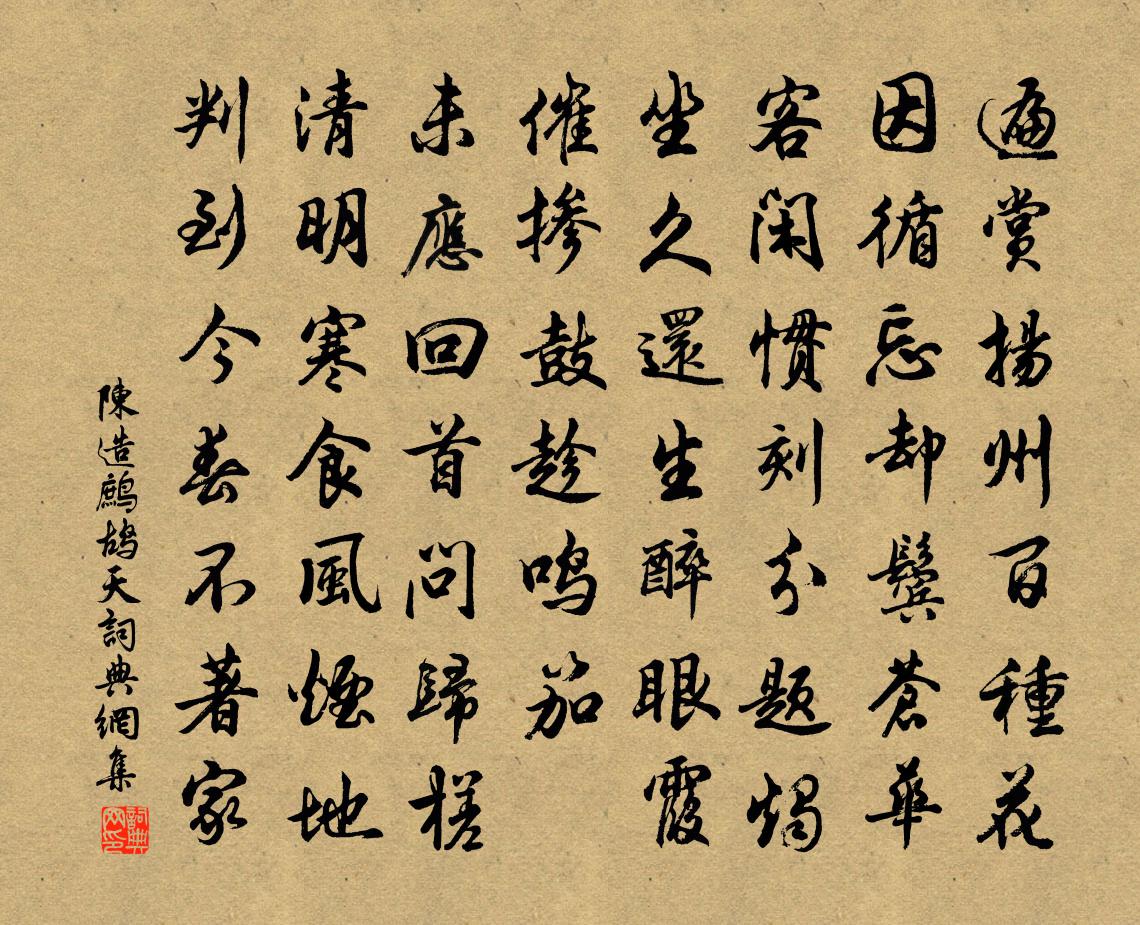 遍賞揚州百種花
因循忘却鬢蒼華
客閑慣刻分題燭
坐久還生醉眼霞
催摻鼓趁鳴笳
未應回首問歸槎
清明寒食風煙地
判到今春不著家
陳造鷓鴣天詞典網集
詞典網印